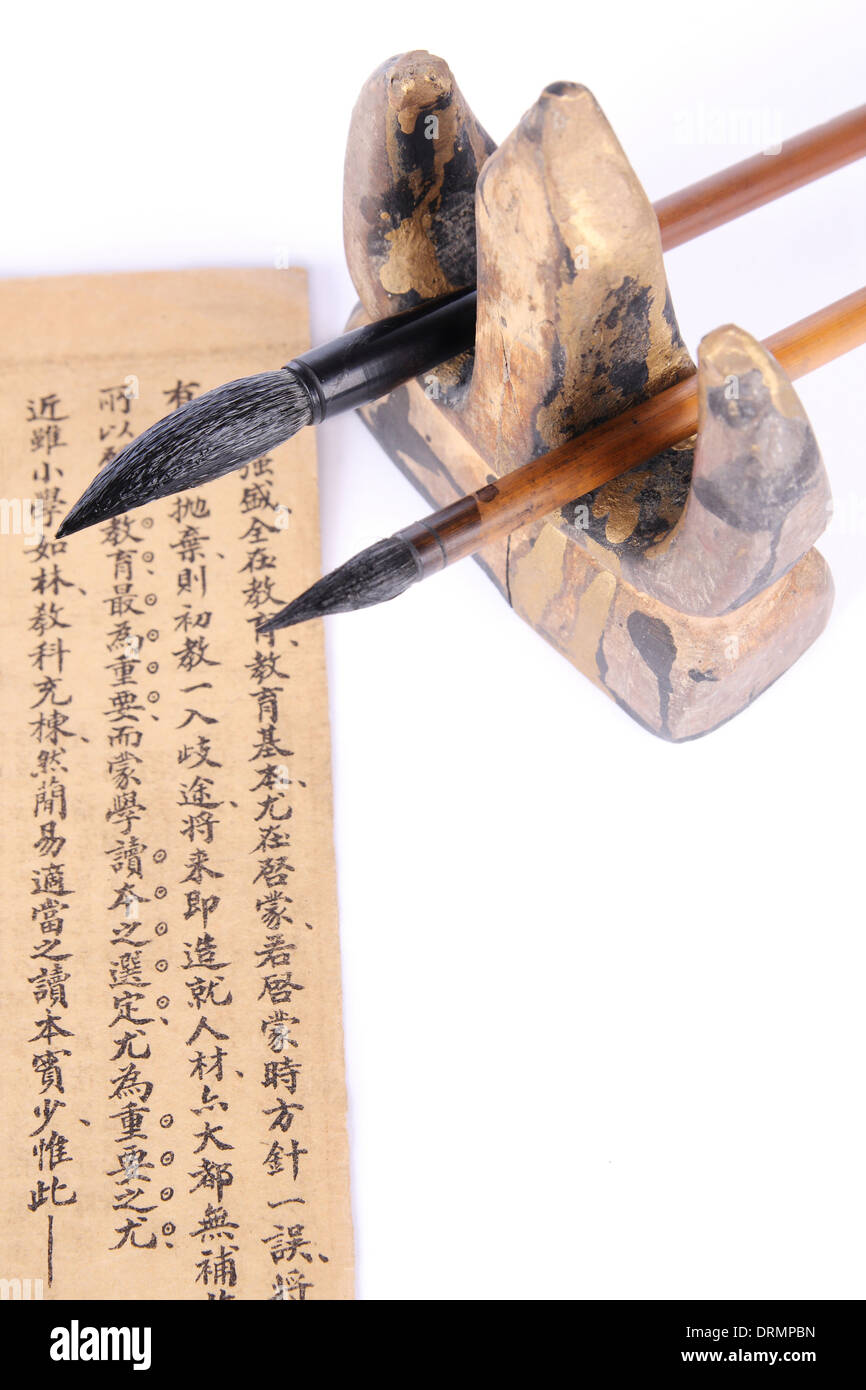 強盛全在教育、教育基本、尤在啓蒙、若啓蒙時方針一誤、將
有拋棄、則初教一入歧途、將来即造就人材、亦大都無補
所以教育最為重要、而蒙學讀本之選定、尤為重要之尤
近雖小學如林、教科充棟、然簡易適當之讀本實少、惟此—
alamy
Image ID: DRMPBN
www.alamy.com